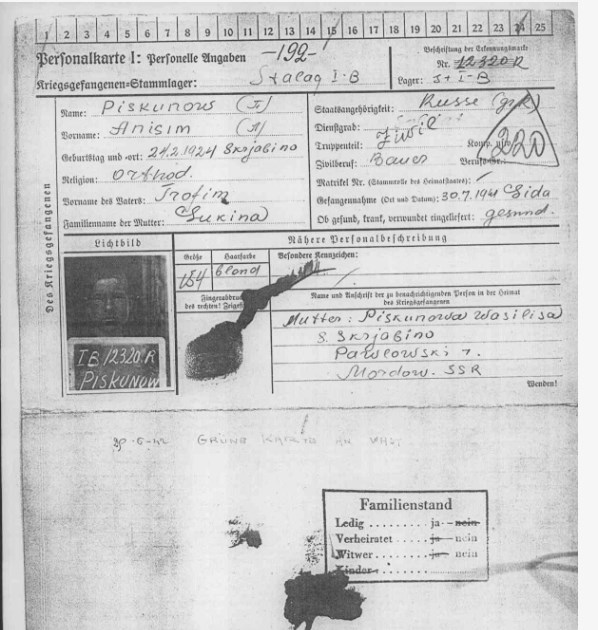 1 2 3 4 5 6 7 8 9 10 11 12 13 14 15 16 17 18 19 20 21 22 23 24 25
Personalkarte I: Personelle Angaben
-192-
Beschriftung der Erkennungsmarke
Nr. 12320 R
Kriegsgefangenen-Stammlager: Stalag I-B
Lager: St I-B
Des Kriegsgefangenen
Name: Piskunow (п)
Vorname: Anisim (л)
Geburtstag und -ort: 24.2.1924 Skrjabino
Religion: orthod.
Vorname des Vaters: Trofim
Familienname der Mutter: Lukina
Staatsangehörigkeit: Russe
Dienstgrad:
Truppenteil: Zivil Komp. usw.
Zivilberuf: Bauer Berufs-Gr.:
220
Matrikel Nr. (Stammrolle des Heimatstaates):
Gefangennahme (Ort und Datum): 30.7.1941 Lida
Ob gesund, krank, verwundet eingeliefert: gesund.
Lichtbild
IB/12320.R
PISKUNOW
Nähere Personalbeschreibung
Größe Haarfarbe Besondere Kennzeichen:
154 blond
Fingerabdruck
des rechten! Zeigef
Name und Anschrift der zu benachrichtigenden Person in der Heimat
des Kriegsgefangenen
Mutter: Piskunowa Wasilisa
S. Skrjabino
Pawlowski r.
Mordow. SSR
Wenden!
GRÜNE KARTE AN
Familienstand
Ledig ........ ja - nein
Verheiratet .... ja - nein
Witwer ....... ja - nein
Kinder